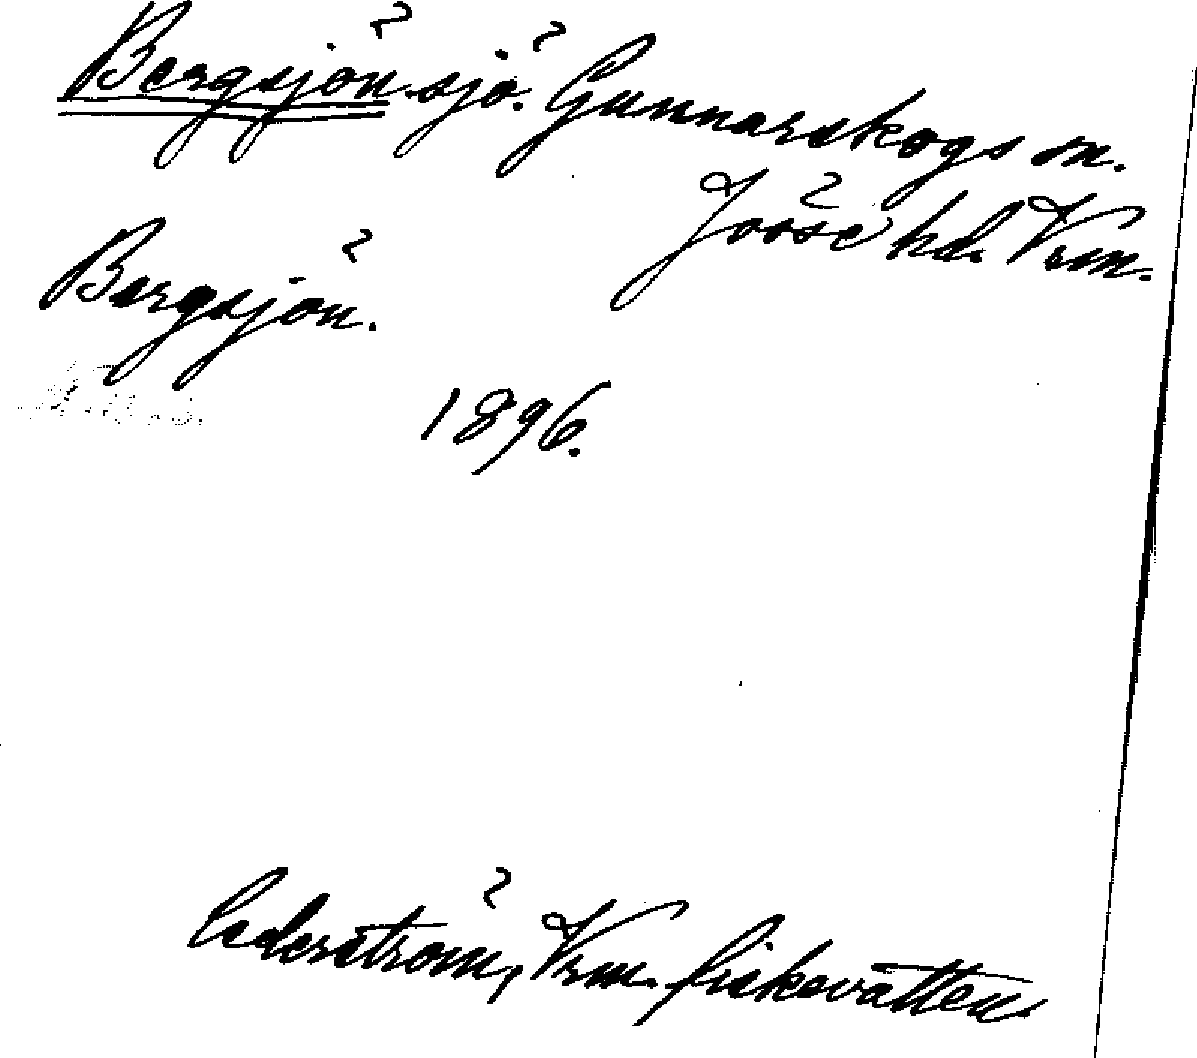 Bergsjön. sjö. Gunnarskogs sn.
Jösse hd. Vrm.
Bergsjön.
1896.
Cederström, Vrm. fiskevatten.